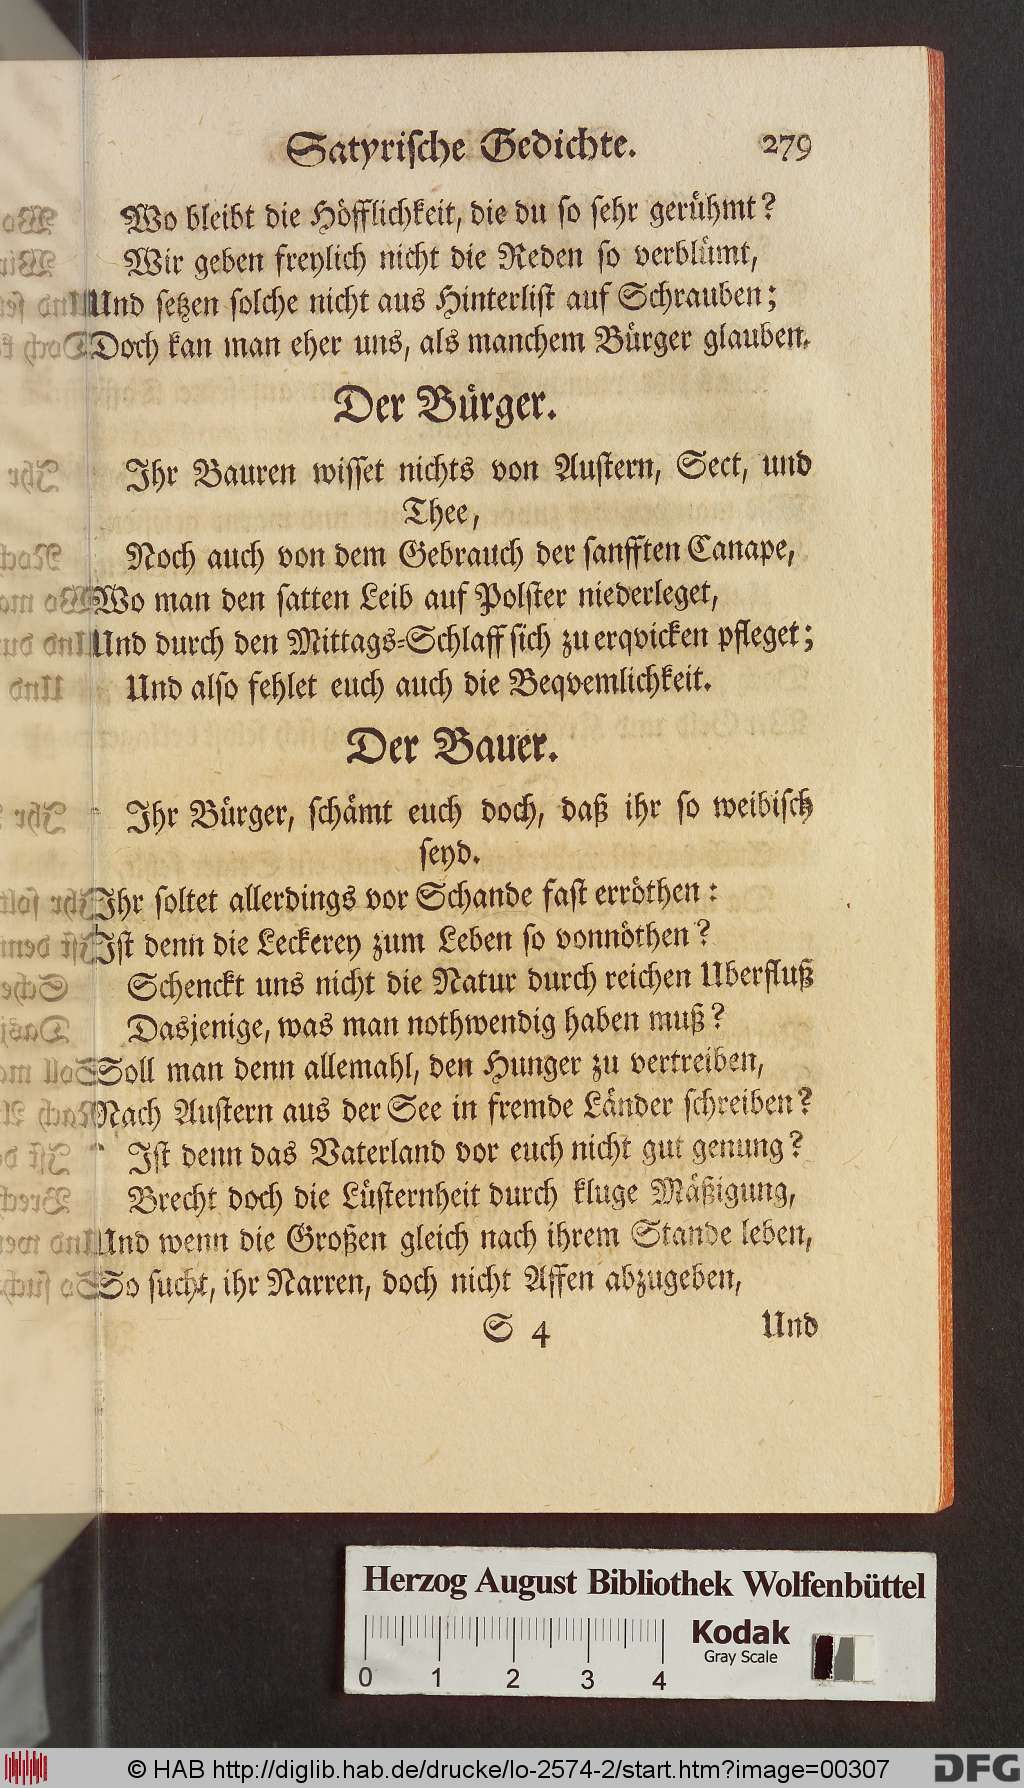 Satyrische Gedichte. 279
Wo bleibt die Höfflichkeit, die du so sehr gerühmt?
Wir geben freylich nicht die Reden so verblümt,
Und setzen solche nicht aus Hinterlist auf Schrauben;
Doch kan man eher uns, als manchem Bürger glauben.
Der Bürger.
Ihr Bauren wisset nichts von Austern, Sect, und
Thee,
Noch auch von dem Gebrauch der sanfften Canape,
Wo man den satten Leib auf Polster niederleget,
Und durch den Mittags-Schlaff sich zu erqvicken pfleget;
Und also fehlet euch auch die Beqvemlichkeit.
Der Bauer.
Ihr Bürger, schämt euch doch, daß ihr so weibisch
seyd.
Ihr soltet allerdings vor Schande fast erröthen:
Ist denn die Leckerey zum Leben so vonnöthen?
Schenckt uns nicht die Natur durch reichen Uberfluß
Dasjenige, was man nothwendig haben muß?
Soll man denn allemahl, den Hunger zu vertreiben,
Nach Austern aus der See in fremde Länder schreiben?
Ist denn das Vaterland vor euch nicht gut genung?
Brecht doch die Lüsternheit durch kluge Mäßigung,
Und wenn die Großen gleich nach ihrem Stande leben,
So sucht, ihr Narren, doch nicht Affen abzugeben,
S 4 Und
Herzog August Bibliothek Wolfenbüttel
Kodak
Gray Scale
0 1 2 3 4
© HAB http://diglib.hab.de/drucke/lo-2574-2/start.htm?image=00307
DFG